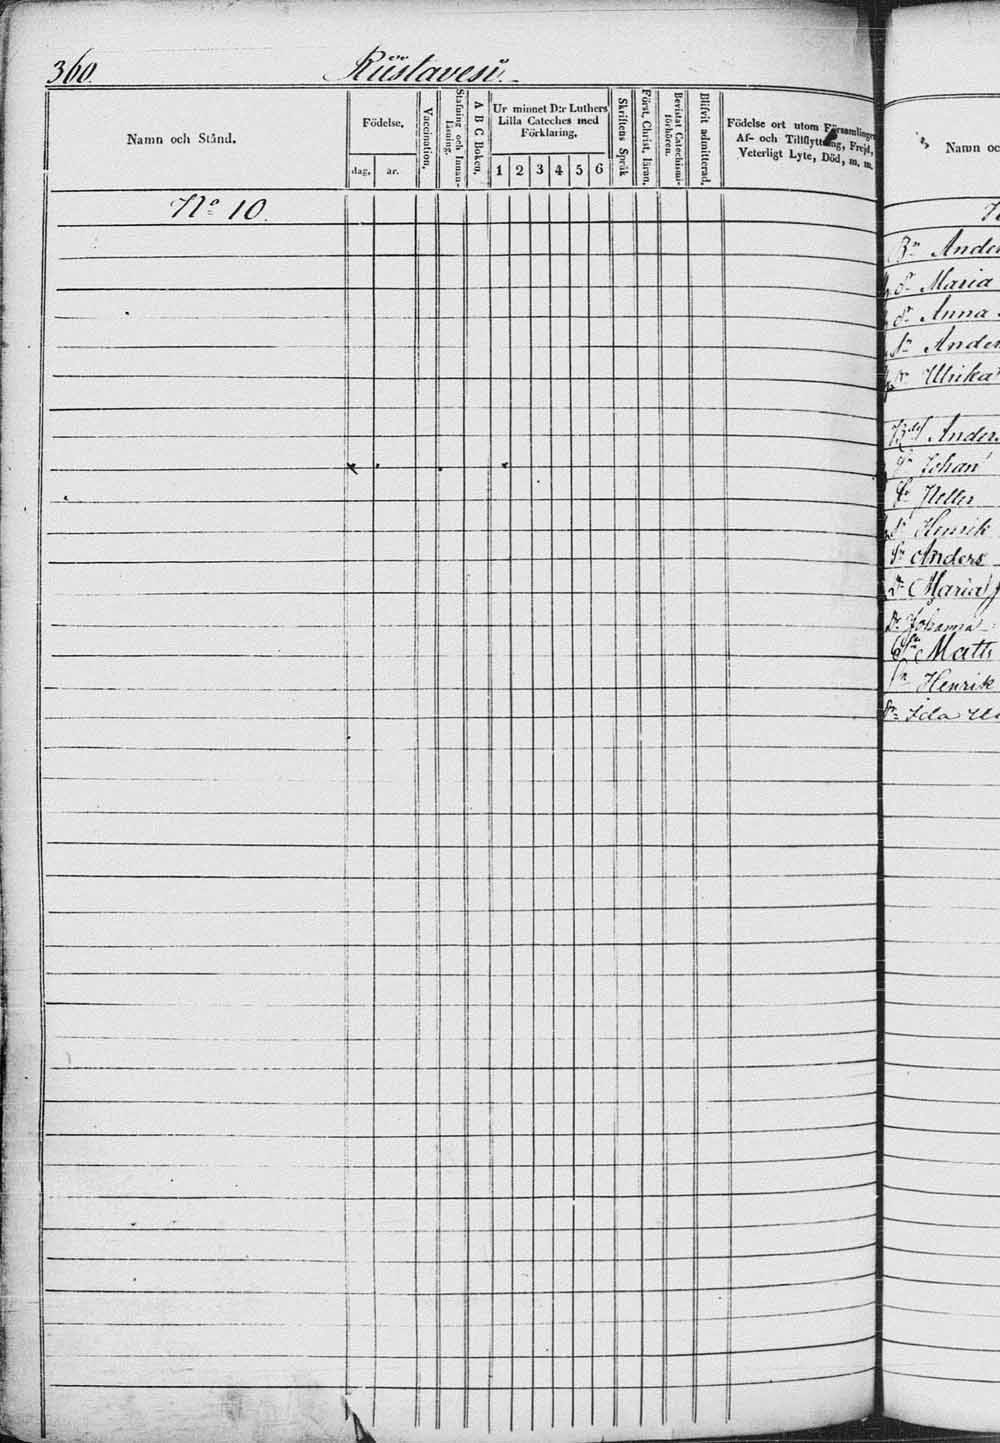 360.
Rüstavesi.
Namn och Stånd.
Födelse.
dag.
år.
Vaccination.
Stafning och Innan-
läsning.
A B C Boken.
Ur minnet D:r Luthers
Lilla Cateches med
Förklaring.
1 2 3 4 5 6
Skriftens Språk
Först. Christ. läran.
Bevistat Catechismi-
förhören.
Blifvit admitterad.
Födelse ort utom Församlingen
Af- och Tillflyttning, Frejd,
Veterligt Lyte, Död, m. m.
No 10.
Namn oc
Ander
Maria
Anna
Ander
Ulrika
Anders
Johan
Heller
Henrik
Anders
Maria
Johanna
Matts
Henrik
Ida Ul